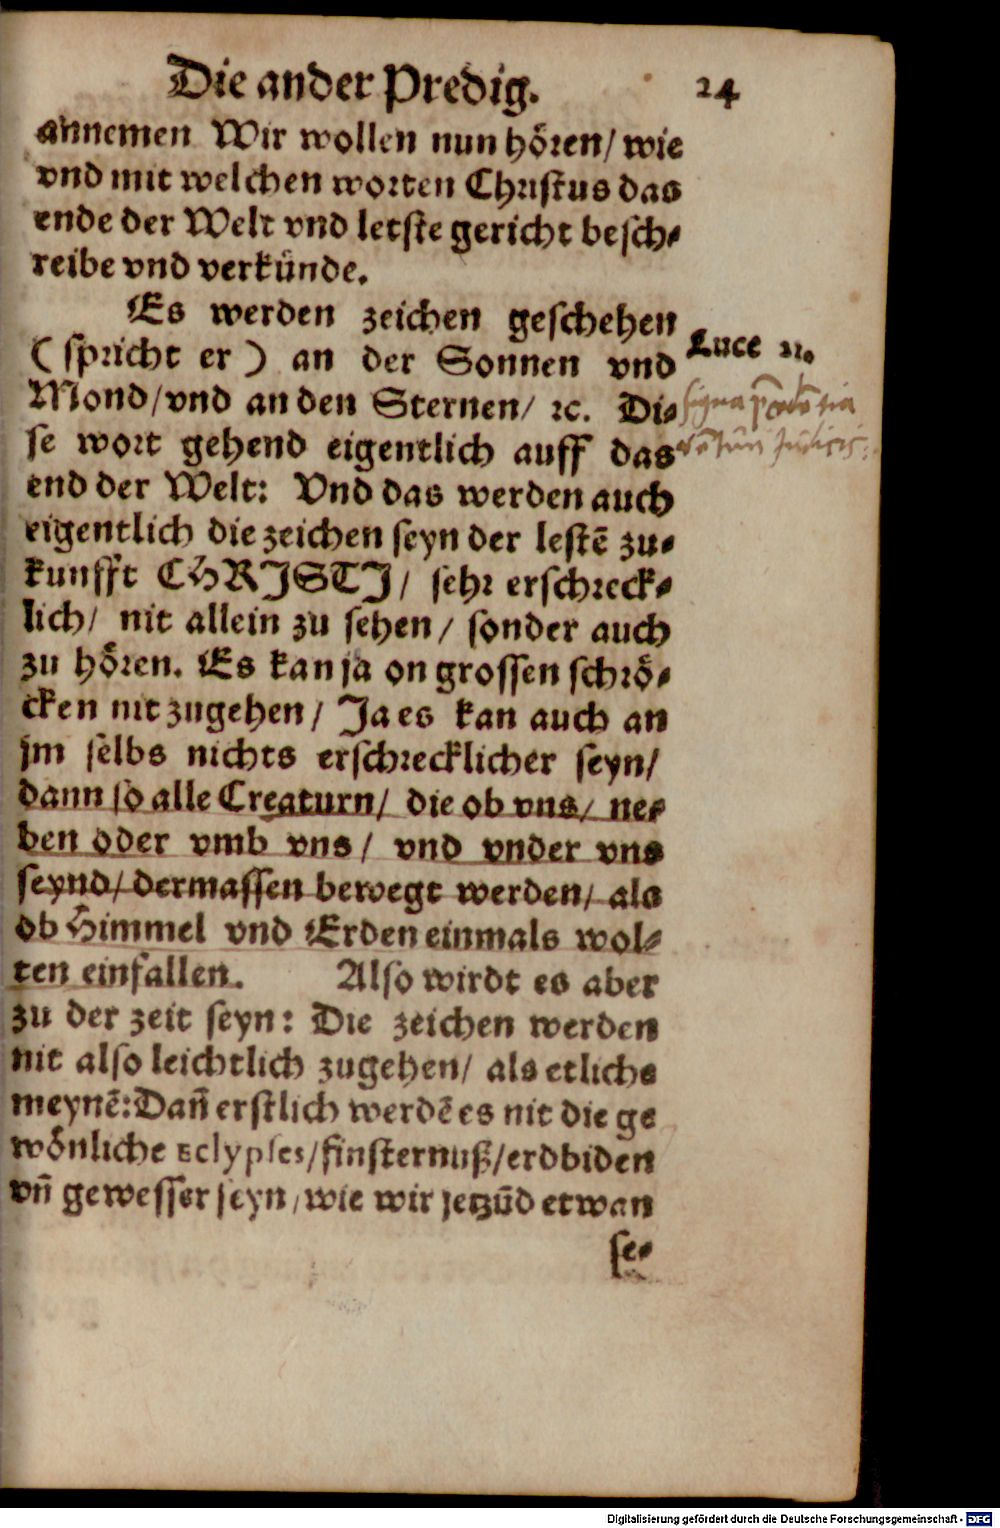 Die ander Predig. 24
annemen Wir wollen nun hören/ wie
vnd mit welchen worten Christus das
ende der Welt vnd letste gericht besch⸗
reibe vnd verkünde.
Es werden zeichen geschehen
(spricht er) an der Sonnen vnd
Luce 21.
Mond/vnd an den Sternen/ ꝛc. Di⸗
signa
se wort gehend eigentlich auff das
end der Welt: Vnd das werden auch
eigentlich die zeichen seyn der lestē zu⸗
kunfft CHRISTI/ sehr erschreck⸗
lich/ nit allein zu sehen/ sonder auch
zu hören. Es kan ja on grossen schrö⸗
cken nit zugehen/ Ja es kan auch an
jm selbs nichts erschrecklicher seyn/
dann so alle Creaturn/ die ob vns/ ne⸗
ben oder vmb vns/ vnd vnder vns
seynd/ dermassen bewegt werden/ als
ob Himmel vnd Erden einmals wol⸗
ten einfallen. Also wirdt es aber
zu der zeit seyn: Die zeichen werden
nit also leichtlich zugehen/ als etliche
meynē: Dañ erstlich werdē es nit die ge
wönliche Eclypses/finsternuß/erdbiden
vñ gewesser seyn/wie wir jetzūd etwan
se⸗
Digitalisierung gefördert durch die Deutsche Forschungsgemeinschaft - DFG